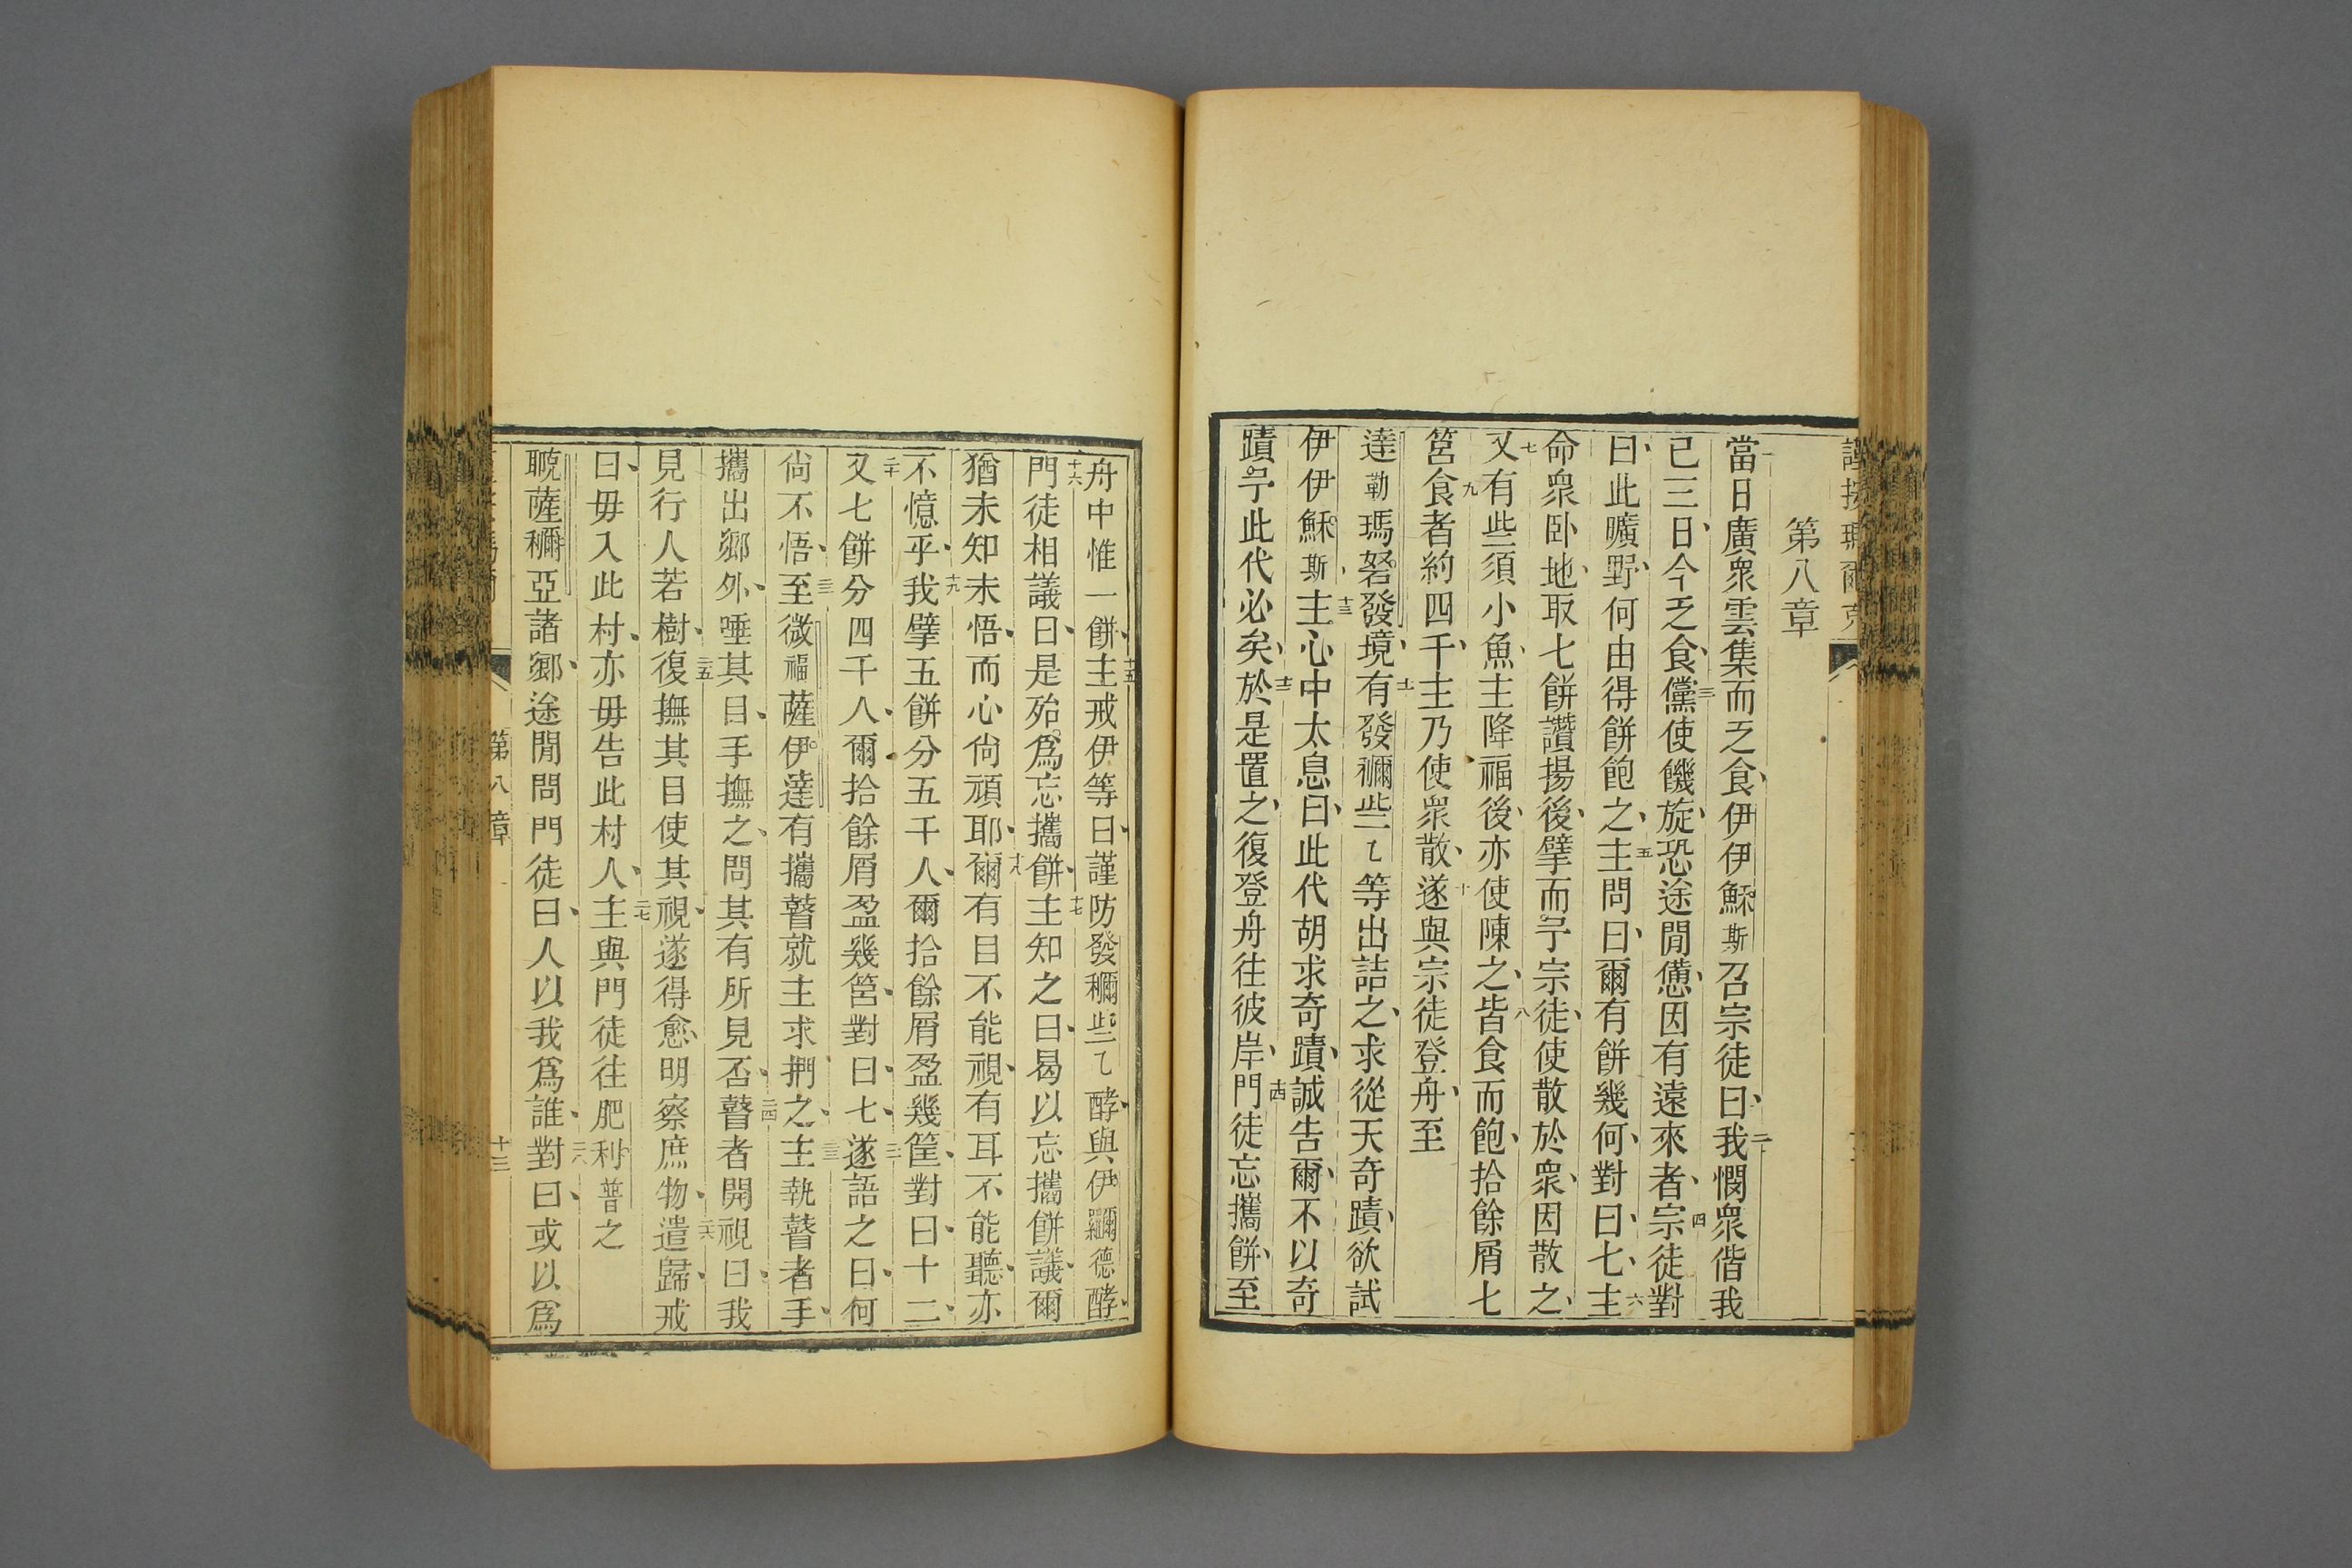 第八章
一當日廣眾雲集而乏食、伊伊穌斯召宗徒曰、二我憫眾偕我
已三日、今乏食、三儻使饑旋、恐途閒憊、因有遠來者、四宗徒對
曰、此曠野、何由得餅飽之、五主問曰、爾有餅幾何、對曰、七、六主
命眾卧地、取七餅讚揚後、擘而予宗徒、使散於眾、因散之、
七又有些須小魚、主降福後、亦使陳之、八皆食而飽、拾餘屑七
筥、九食者約四千、主乃使眾散、十遂與宗徒登舟、至
達勒瑪努發境、十一有發穪些乙等出詰之、求從天奇蹟、欲試
伊伊穌斯、十二主心中太息曰、此代胡求奇蹟、誠告爾、不以奇
蹟予此代必矣、十三於是置之、復登舟往彼岸、十四門徒忘攜餅、至
舟中惟一餅、十五主戒伊等曰、謹防發穪些乙酵、與伊德酵、
十六門徒相議曰、是殆爲忘攜餅、十七主知之曰、曷以忘攜餅議、爾
猶未知未悟、而心尙頑耶、十八爾有目不能視、有耳不能聽、亦
不憶乎、十九我擘五餅分五千人、爾拾餘屑盈幾筐、對曰、十二、
二十又七餅分四千人、爾拾餘屑盈幾筥、對曰、七、二一遂語之曰、何
尙不悟、二二至微福薩伊達、有攜瞽就主求捫之、二三主執瞽者手、
攜出鄉外、唾其目、手撫之、問其有所見否、二四瞽者開視曰、我
見行人若樹、二五復撫其目使其視、遂得愈、明察庶物、二六遣歸、戒
曰、毋入此村、亦毋告此村人、二七主與門徒往肥利普之
薩穪亞諸鄉、途閒問門徒曰、人以我爲誰、二八對曰、或以爲
第八章
十三